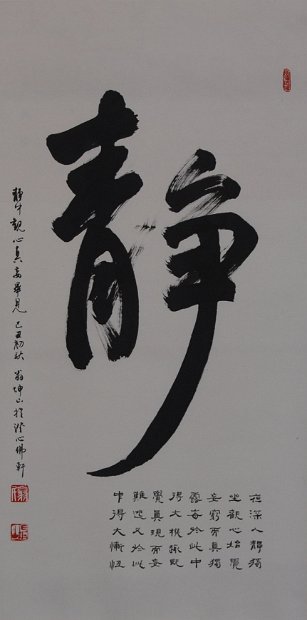 静
夜深人靜獨
坐觀心始覺
妄窮而真獨
露每於此中
得大機趣既
覺真現而妄
難逃又於此
中得大慚忸
靜中觀心真妄畢見 己丑初秋 坤山於澄心佛軒